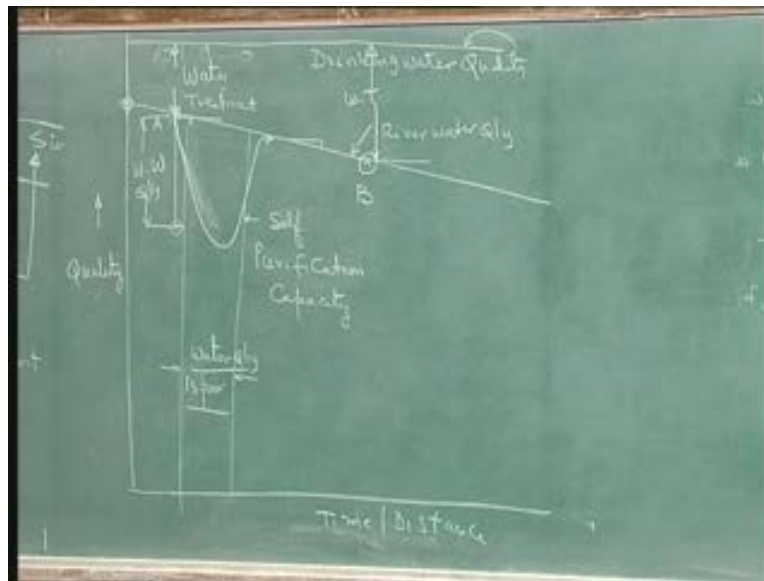 Drinking water Quality
Water
Treatment
W.T
River water Qly
A
W.W
Qly
B
Self
Purification
Capacity
Quality
Water Qly
is poor
Time / Distance